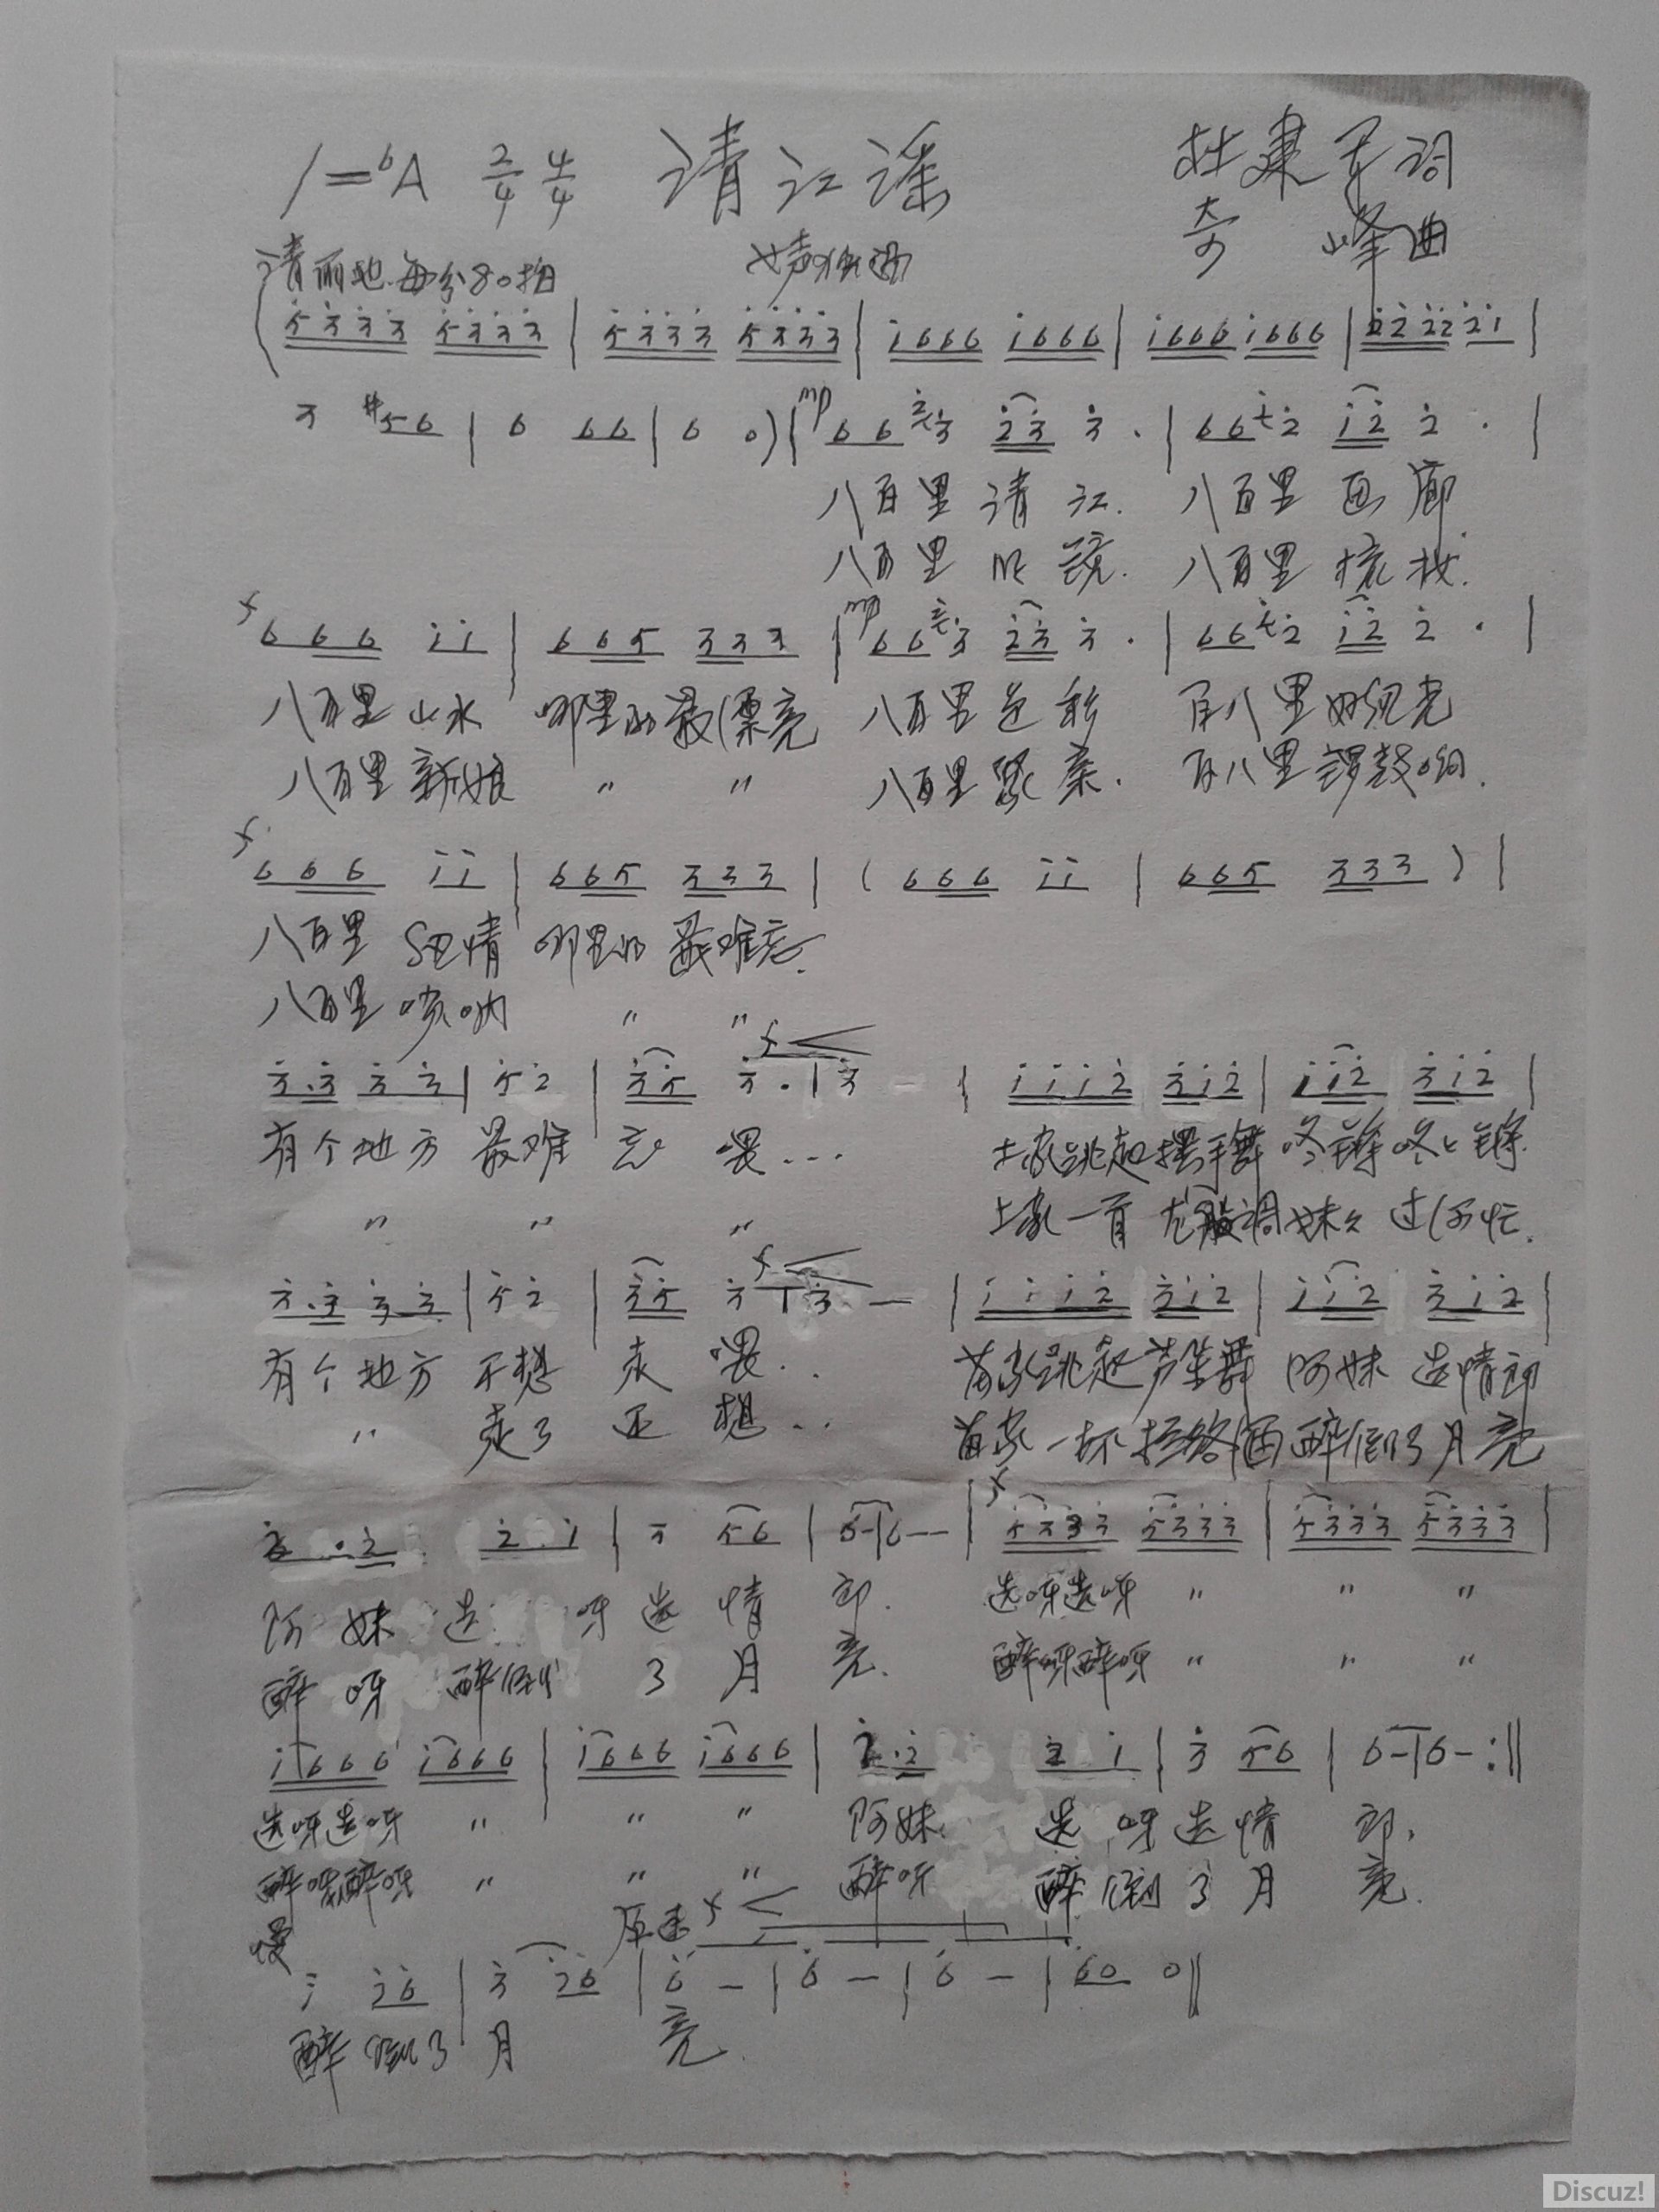 1=bA 2/4 4/4 清江谣 杜建军词
奇 峰曲
清丽地 每分80拍 女声独唱
(5333 5333 | 5333 5333 | i666 i666 | i666 i666 | 2222 21 |
3 #56 | 6 66 | 6 0) | mp 66 3 23 3 . | 66 2 i2 2 . |
八百里 清 江. 八百里 画 廊.
八百里 明 镜. 八百里 梳 妆.
f 666 ii | 665 333 | mp 66 3 23 3 . | 66 2 i2 2 . |
八百里 山水 哪里的最漂亮 八百里 色彩 百八里好风光
八百里 新娘 〃 〃 八百里 百八里锣鼓响.
f 666 ii | 665 333 | ( 666 ii | 665 333 ) |
八百里 风情 哪里的 最难忘.
八百里 唢呐 〃 〃
f
3.3 33 | 52 | 35 3 . | 3 - | iii2 3i2 | ii2 3i2 |
有个地方 最难 忘 喂... 土家跳起摆手舞 咚锵咚咚锵.
〃 〃 〃 土家一首龙船调妹妹过河忙.
f
3.3 33 | 52 | 35 3 | 3 - | iii2 3i2 | ii2 3i2 |
有个地方 不想 走 喂.. 苗家跳起芦笙舞 阿妹 选情郎
〃 走了 还 想... 苗家一杯 酒醉倒了月亮
2.2 2i | 3 56 | 6-|6-- | f 5333 5333 | 5333 5333 |
阿 妹 选 呀 选 情 郎. 选呀选呀 〃 〃 〃
醉 呀 醉倒 了 月 亮. 醉呀醉呀 〃 〃 〃
i666 i666 | i666 i666 | 2.2 2i | 3 56 | 6-|6-:‖
选呀选呀 〃 〃 〃 阿妹 选 呀选情 郎.
醉呀醉呀 〃 〃 〃 醉呀 醉倒了月 亮.
慢 原速 f
i6 | 3 26 | 6 - | 6 - | 6 - | 60 0‖
醉 倒了 月 亮.
Discuz!